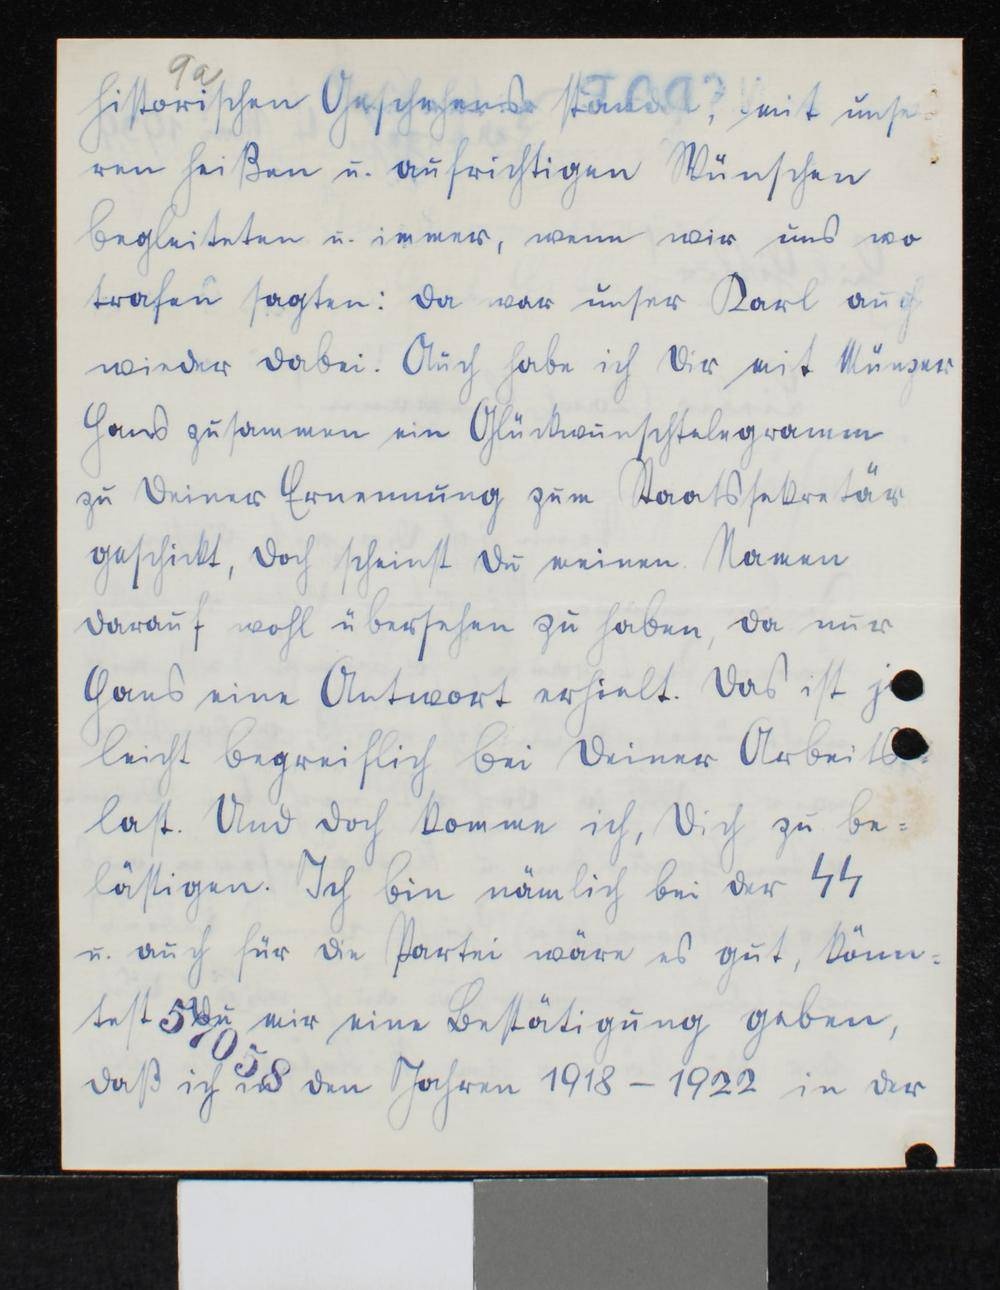 9a
historischen Geschehens standen, mit unse=
ren heißen u. aufrichtigen Wünschen
begleiteten u. immer, wenn wir uns wo
trafen sagten: da war unser Karl auch
wieder dabei. Auch habe ich Dir mit Münzer
Hans zusammen ein Glückwunschtelegramm
zu Deiner Ernennung zum Staatssekretär
geschickt, doch scheinst Du meinen Namen
darauf wohl übersehen zu haben, da nur
Hans eine Antwort erhielt. Das ist ja
leicht begreiflich bei Deiner Arbeits=
last. Und doch komme ich, Dich zu be=
lästigen. Ich bin nämlich bei der SS
u. auch für die Partei wäre es gut, könn=
test Du mir eine Bestätigung geben,
57058
daß ich in den Jahren 1918 – 1922 in der